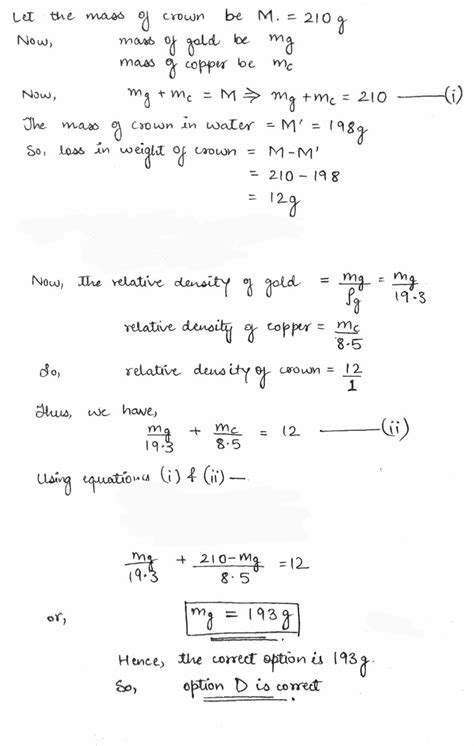 Let the mass of crown be M. = 210 g
Now, mass of gold be mg
mass of copper be mc
Now, mg + mc = M ⇒ mg + mc = 210 ——(i)
The mass of crown in water = M' = 198g
So, loss in weight of crown = M-M'
= 210 - 198
= 12g
Now, the relative density of gold = mg/ρg = mg/19.3
relative density of copper = mc/8.5
So, relative density of crown = 12/1
Thus, we have,
mg/19.3 + mc/8.5 = 12 ——(ii)
Using equations (i) & (ii) —
mg/19.3 + 210-mg/8.5 = 12
or, mg = 193 g
Hence, the correct option is 193 g.
So, option D is correct